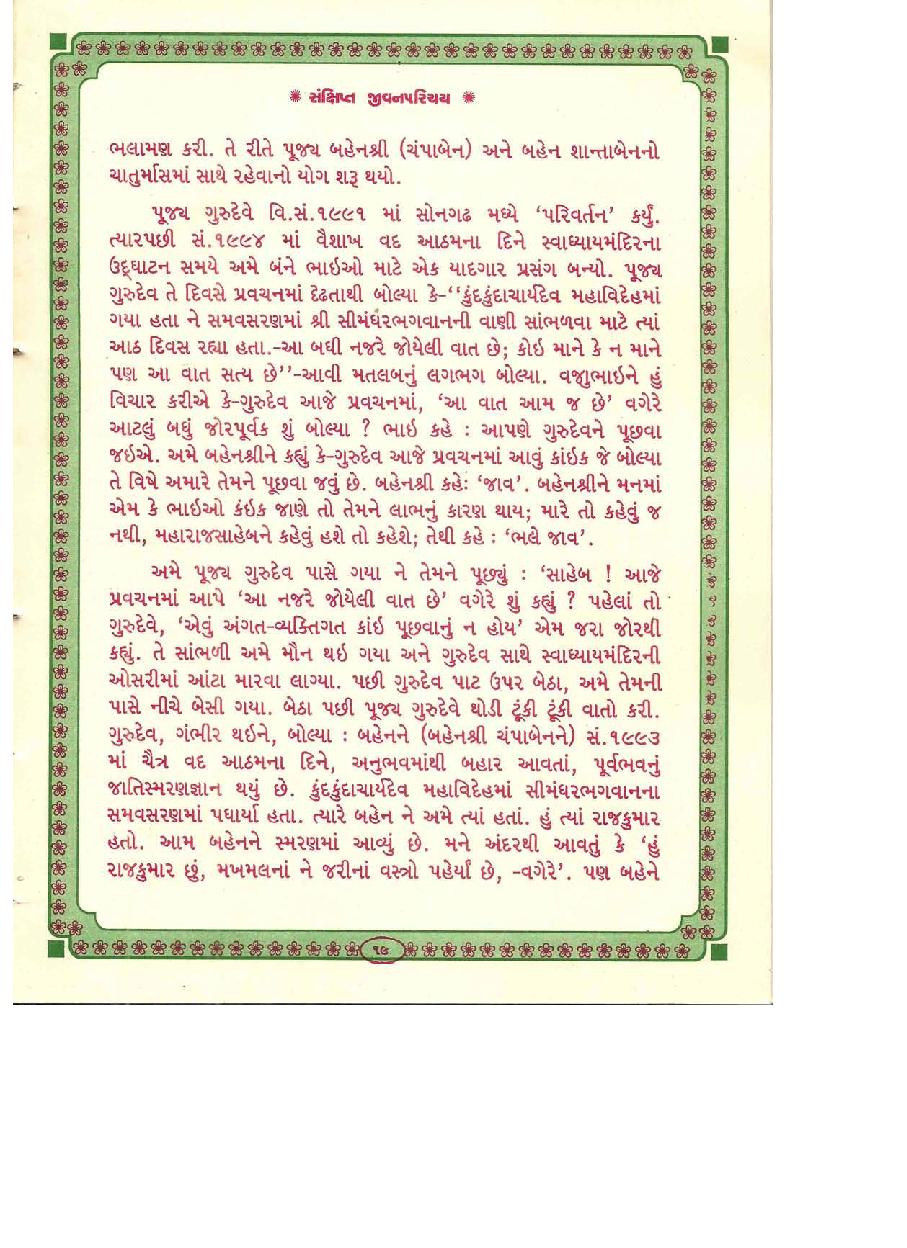 ✺ સંક્ષિપ્ત જીવનપરિચય ✺
ભલામણ કરી. તે રીતે પૂજ્ય બહેનશ્રી (ચંપાબેન) અને બહેન શાન્તાબેનનો
ચાતુર્માસમાં સાથે રહેવાનો યોગ શરૂ થયો.
પૂજ્ય ગુરુદેવે વિ.સં.૧૯૯૧ માં સોનગઢ મધ્યે ‘પરિવર્તન’ કર્યું.
ત્યારપછી સં.૧૯૯૪ માં વૈશાખ વદ આઠમના દિને સ્વાધ્યાયમંદિરના
ઉદ્‌ઘાટન સમયે અમે બંને ભાઇઓ માટે એક યાદગાર પ્રસંગ બન્યો. પૂજ્ય
ગુરુદેવ તે દિવસે પ્રવચનમાં દૃઢતાથી બોલ્યા કે-‘‘કુંદકુંદાચાર્યદેવ મહાવિદેહમાં
ગયા હતા ને સમવસરણમાં શ્રી સીમંધરભગવાનની વાણી સાંભળવા માટે ત્યાં
આઠ દિવસ રહ્યા હતા.-આ બધી નજરે જોયેલી વાત છે; કોઇ માને કે ન માને
પણ આ વાત સત્ય છે’’-આવી મતલબનું લગભગ બોલ્યા. વજુભાઇને હું
વિચાર કરીએ કે-ગુરુદેવ આજે પ્રવચનમાં, ‘આ વાત આમ જ છે’ વગેરે
આટલું બધું જોરપૂર્વક શું બોલ્યા ? ભાઇ કહે : આપણે ગુરુદેવને પૂછવા
જઇએ. અમે બહેનશ્રીને કહ્યું કે-ગુરુદેવ આજે પ્રવચનમાં આવું કાંઇક જે બોલ્યા
તે વિષે અમારે તેમને પૂછવા જવું છે. બહેનશ્રી કહેઃ ‘જાવ’. બહેનશ્રીને મનમાં
એમ કે ભાઇઓ કંઇક જાણે તો તેમને લાભનું કારણ થાય; મારે તો કહેવું જ
નથી, મહારાજસાહેબને કહેવું હશે તો કહેશે; તેથી કહે : ‘ભલે જાવ’.
અમે પૂજ્ય ગુરુદેવ પાસે ગયા ને તેમને પૂછ્યું : ‘સાહેબ ! આજે
પ્રવચનમાં આપે ‘આ નજરે જોયેલી વાત છે’ વગેરે શું કહ્યું ? પહેલાં તો
ગુરુદેવે, ‘એવું અંગત-વ્યક્તિગત કાંઇ પૂછવાનું ન હોય’ એમ જરા જોરથી
કહ્યું. તે સાંભળી અમે મૌન થઇ ગયા અને ગુરુદેવ સાથે સ્વાધ્યાયમંદિરની
ઓસરીમાં આંટા મારવા લાગ્યા. પછી ગુરુદેવ પાટ ઉપર બેઠા, અમે તેમની
પાસે નીચે બેસી ગયા. બેઠા પછી પૂજ્ય ગુરુદેવે થોડી ટૂંકી ટૂંકી વાતો કરી.
ગુરુદેવ, ગંભીર થઇને, બોલ્યા : બહેનને (બહેનશ્રી ચંપાબેનને) સં.૧૯૯૩
માં ચૈત્ર વદ આઠમના દિને, અનુભવમાંથી બહાર આવતાં, પૂર્વભવનું
જાતિસ્મરણજ્ઞાન થયું છે. કુંદકુંદાચાર્યદેવ મહાવિદેહમાં સીમંધરભગવાનના
સમવસરણમાં પધાર્યા હતા. ત્યારે બહેન ને અમે ત્યાં હતાં. હું ત્યાં રાજકુમાર
હતો. આમ બહેનને સ્મરણમાં આવ્યું છે. મને અંદરથી આવતું કે ‘હું
રાજકુમાર છું, મખમલનાં ને જરીનાં વસ્ત્રો પહેર્યાં છે, -વગેરે’. પણ બહેને
૧૭